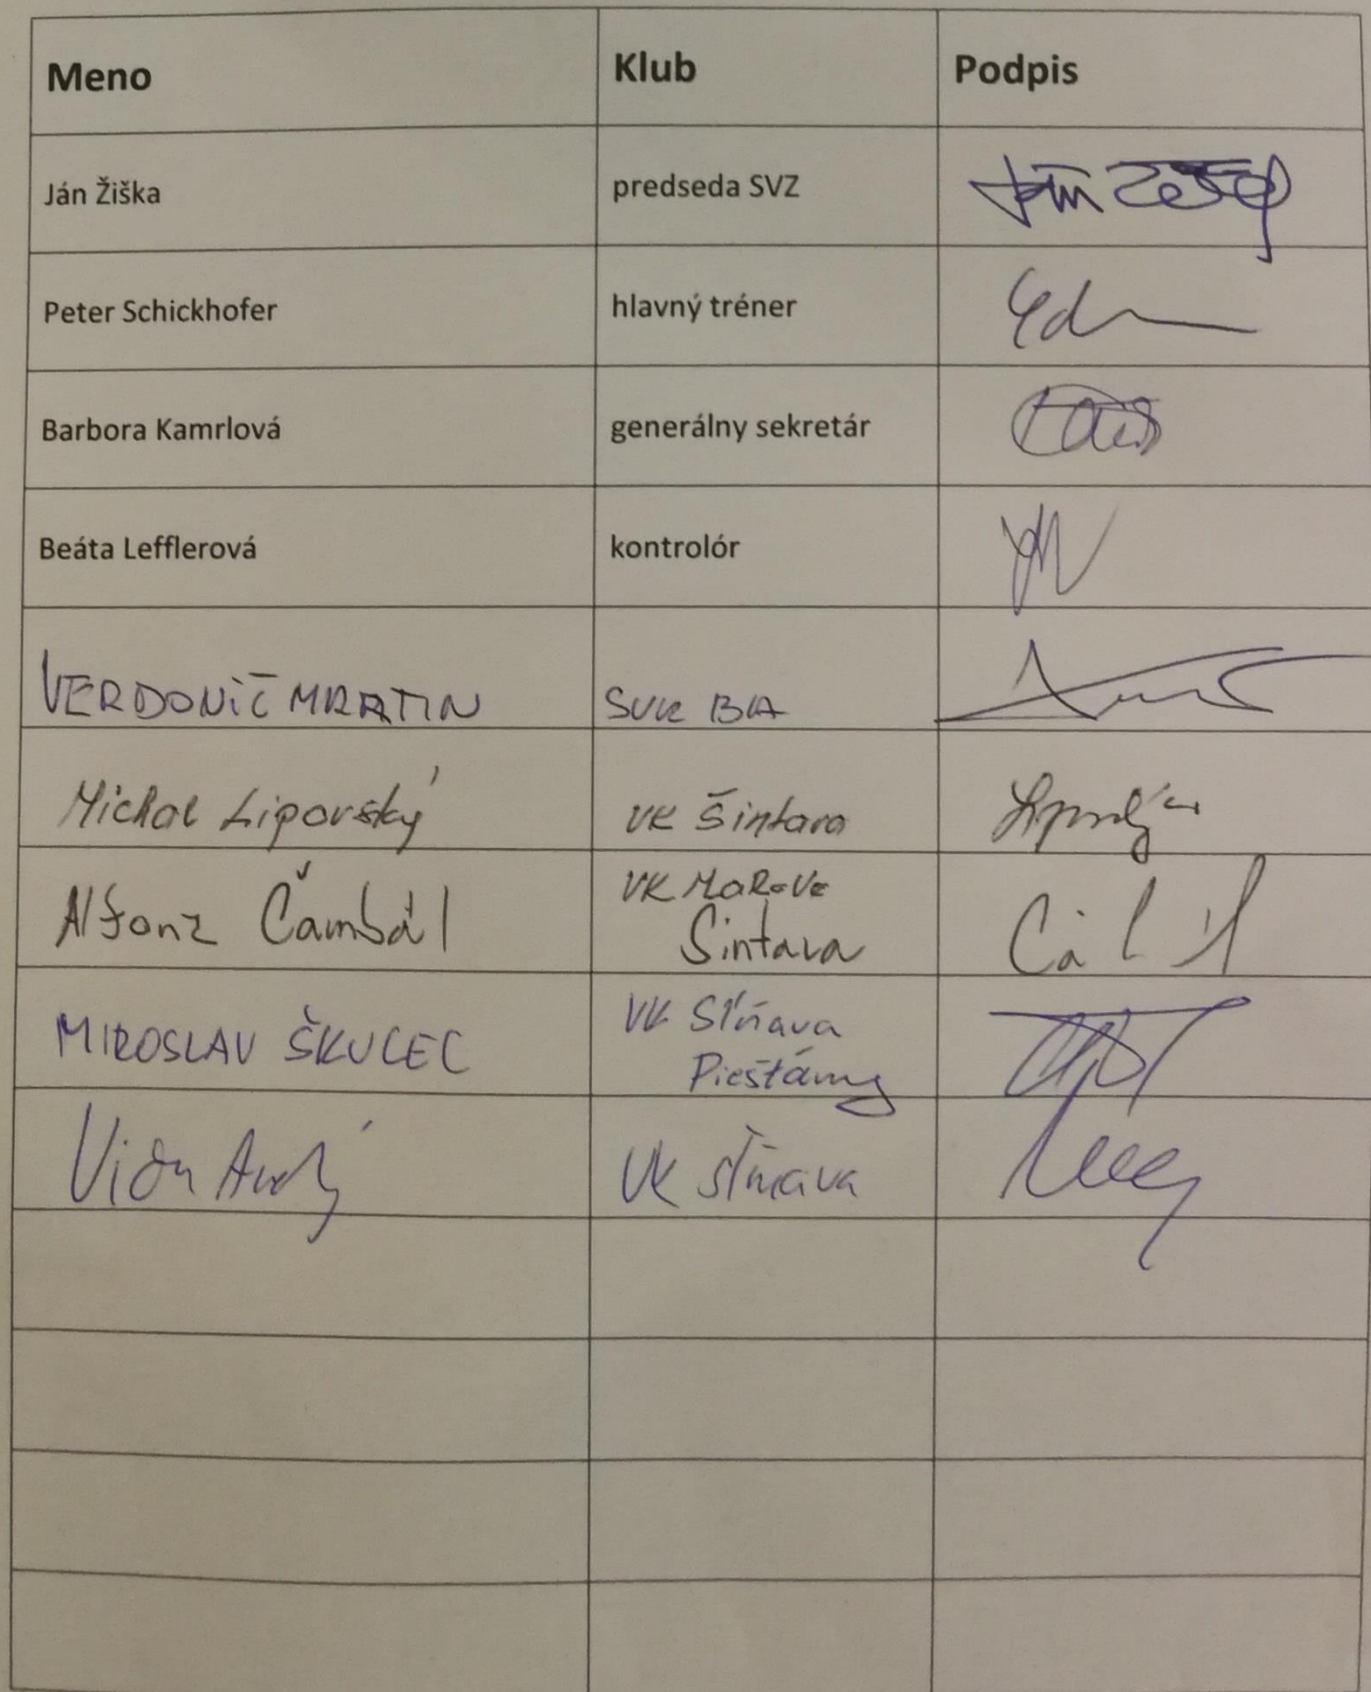 Meno Klub Podpis
Ján Žiška predseda SVZ
Peter Schickhofer hlavný tréner
Barbora Kamrlová generálny sekretár
Beáta Lefflerová kontrolór
VERDONIČ MRATIN SVK BA
Michal Liporský VK Šintava
Alfonz Čambál VK MaRoVe
Šintava
MIROSLAV ŠKULEC VK Sĺňava
Piešťany
VK Sĺňava